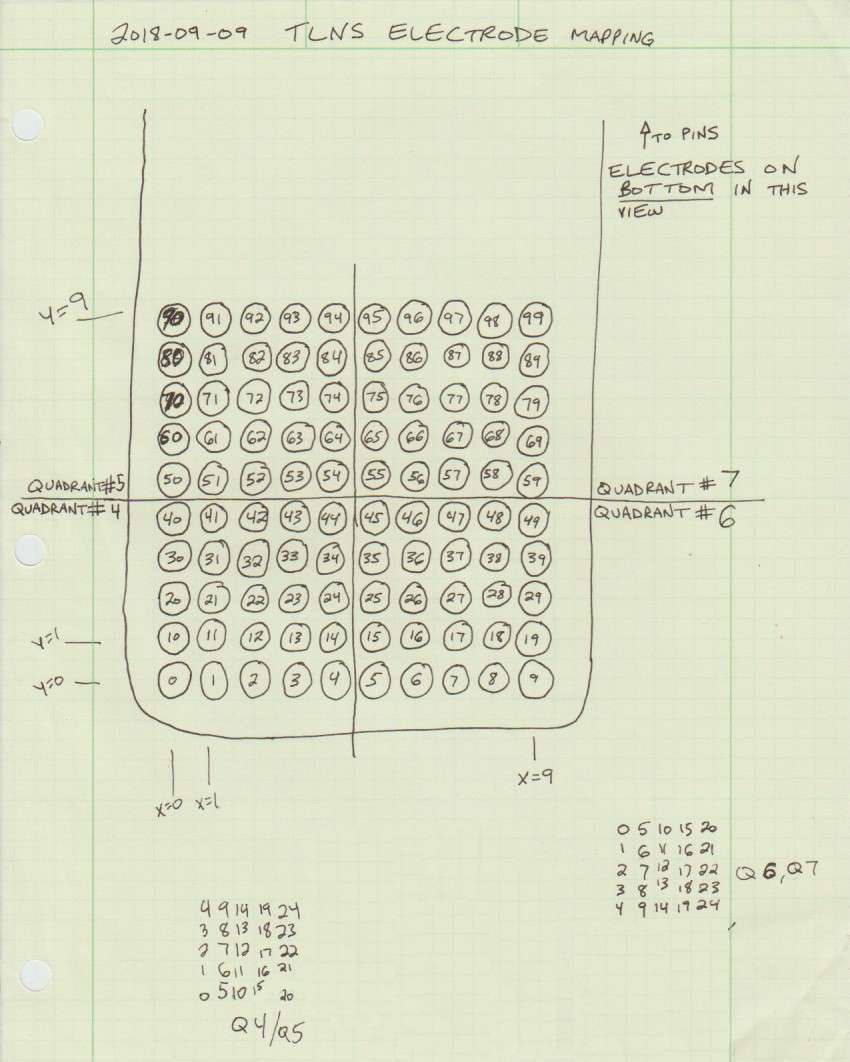 2018-09-09 TLNS ELECTRODE MAPPING
↑ TO PINS
ELECTRODES ON
BOTTOM IN THIS
VIEW
y=9
90 91 92 93 94 95 96 97 98 99
80 81 82 83 84 85 86 87 88 89
70 71 72 73 74 75 76 77 78 79
60 61 62 63 64 65 66 67 68 69
50 51 52 53 54 55 56 57 58 59
QUADRANT #5 QUADRANT # 7
QUADRANT # 4 QUADRANT # 6
40 41 42 43 44 45 46 47 48 49
30 31 32 33 34 35 36 37 38 39
20 21 22 23 24 25 26 27 28 29
y=1 10 11 12 13 14 15 16 17 18 19
y=0 0 1 2 3 4 5 6 7 8 9
x=0 x=1 x=9
0 5 10 15 20
1 6 11 16 21
2 7 12 17 22
3 8 13 18 23
4 9 14 19 24
Q6, Q7
4 9 14 19 24
3 8 13 18 23
2 7 12 17 22
1 6 11 16 21
0 5 10 15 20
Q4/Q5